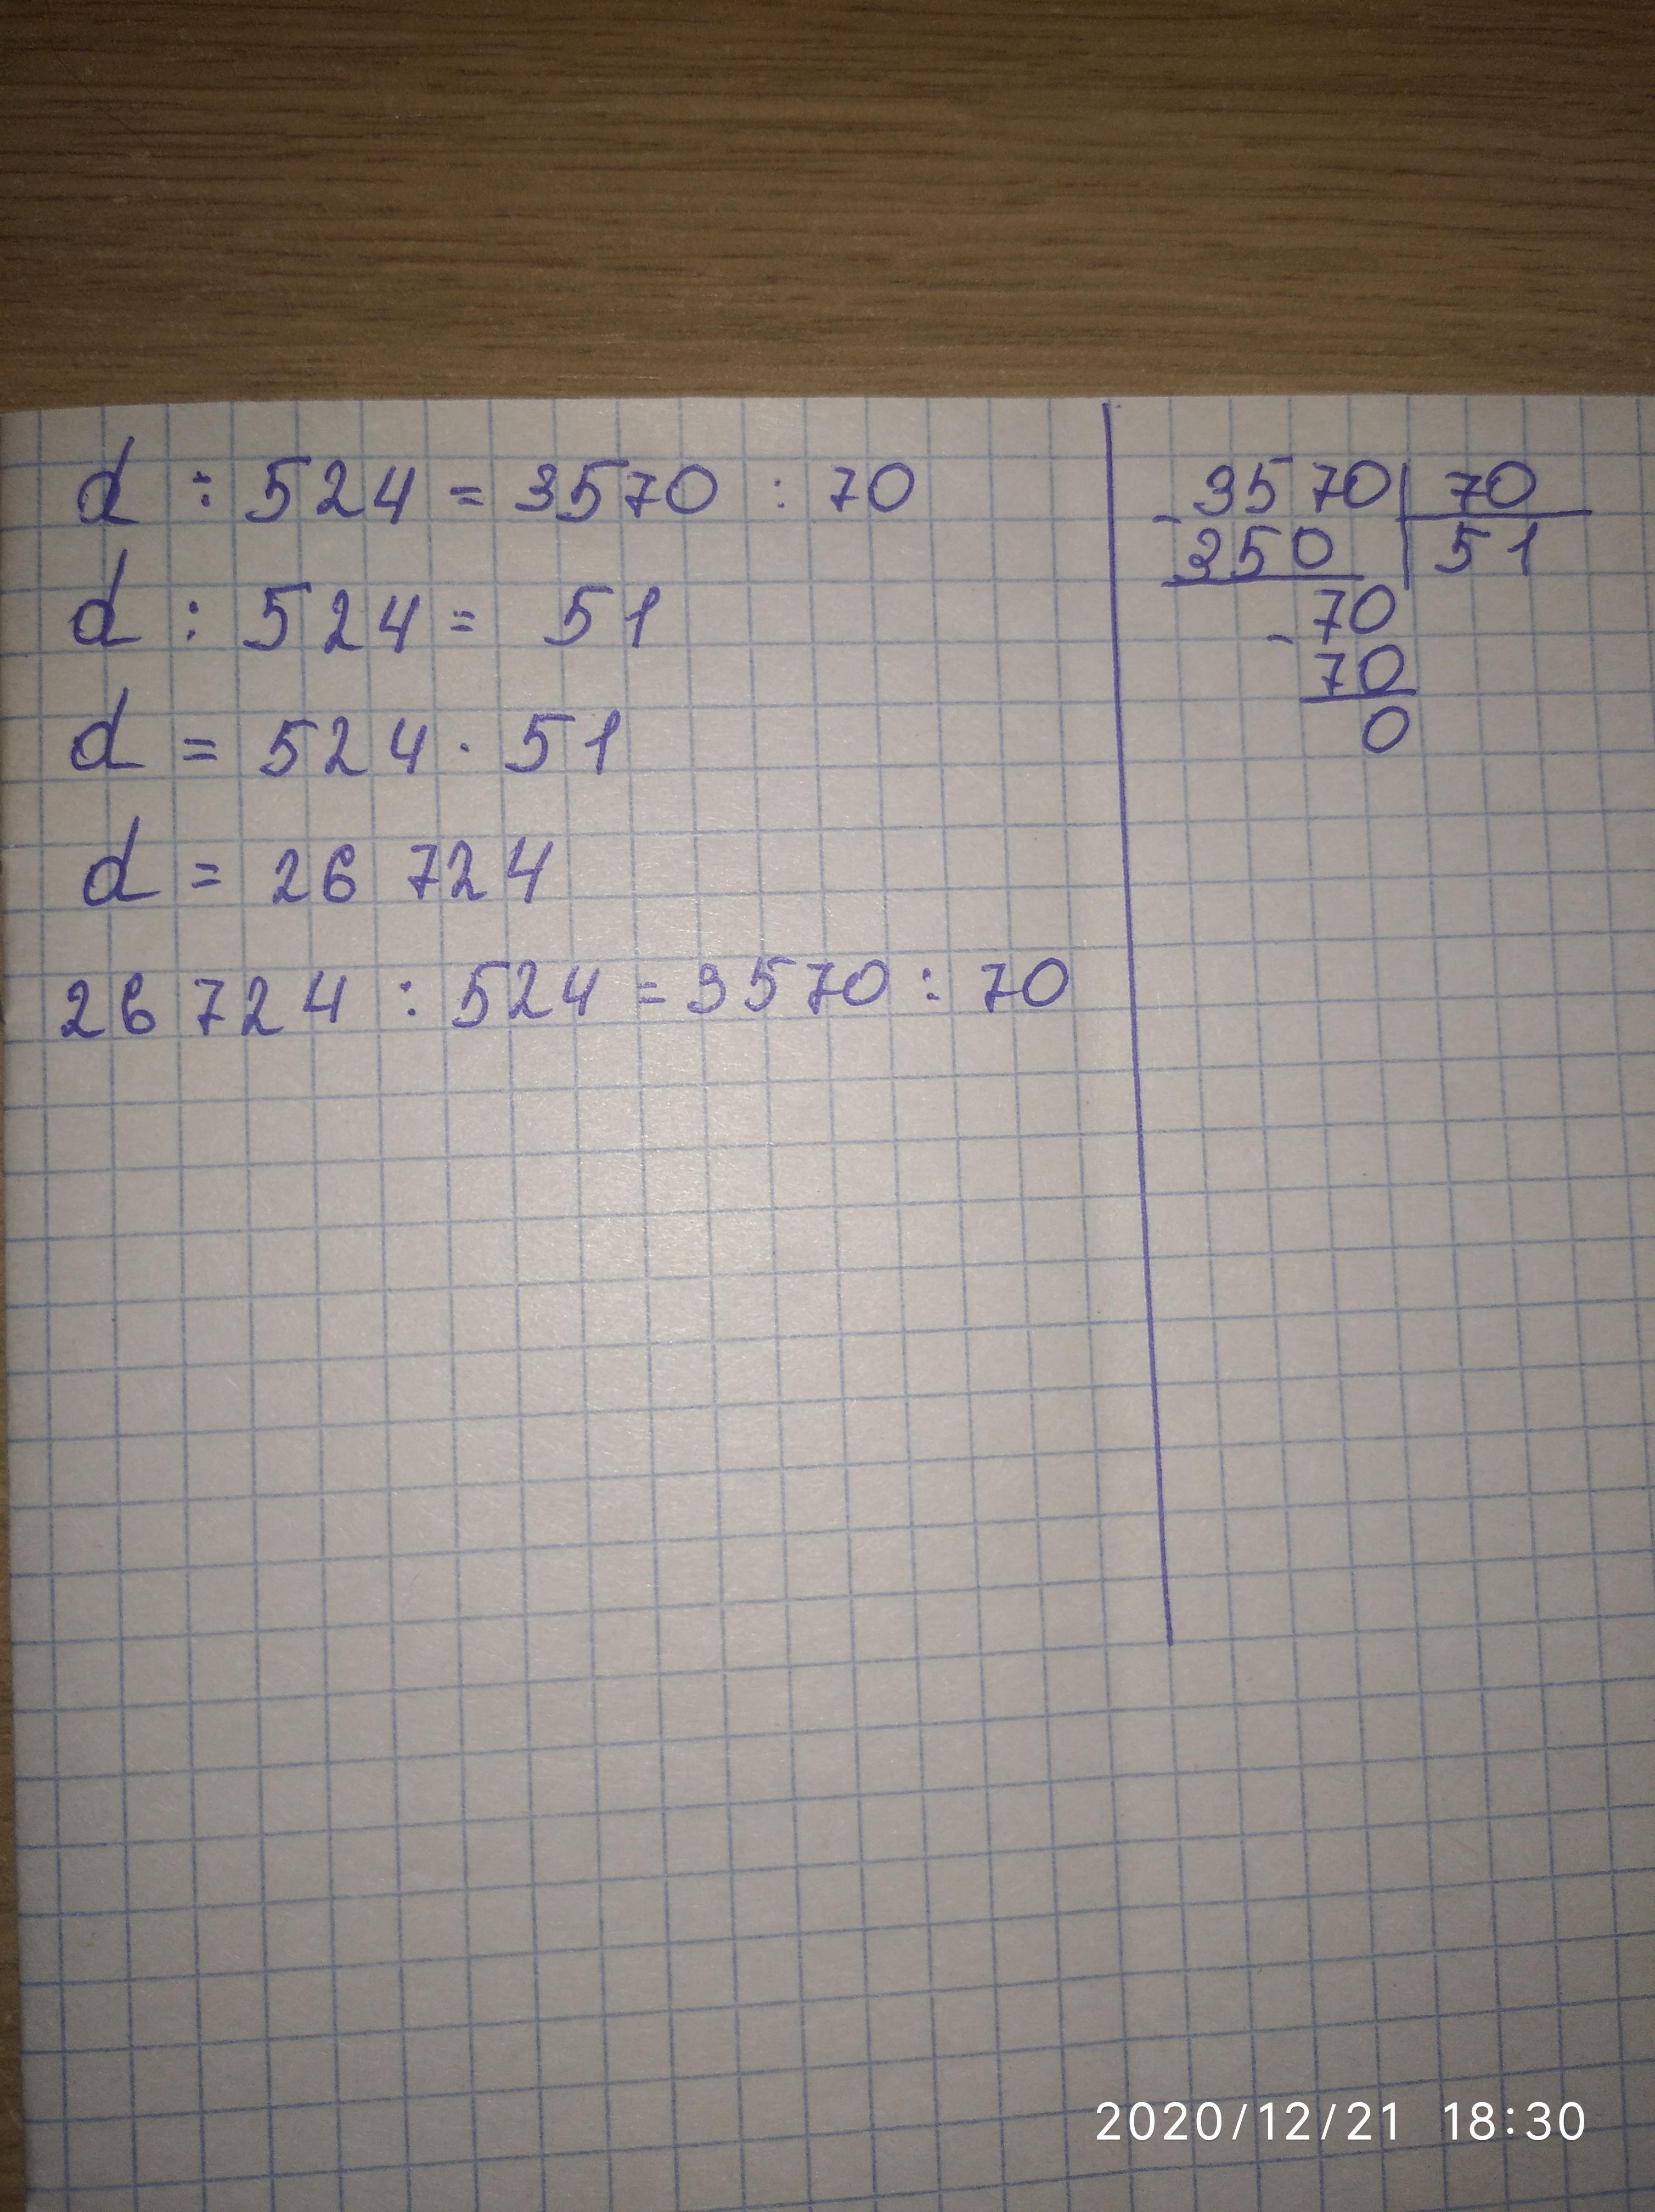 d : 524 = 3570 : 70
d : 524 = 51
d = 524 · 51
d = 26 724
26 724 : 524 = 3570 : 70
3570 | 70
- 350 | 51
70
- 70
0
2020/12/21 18:30